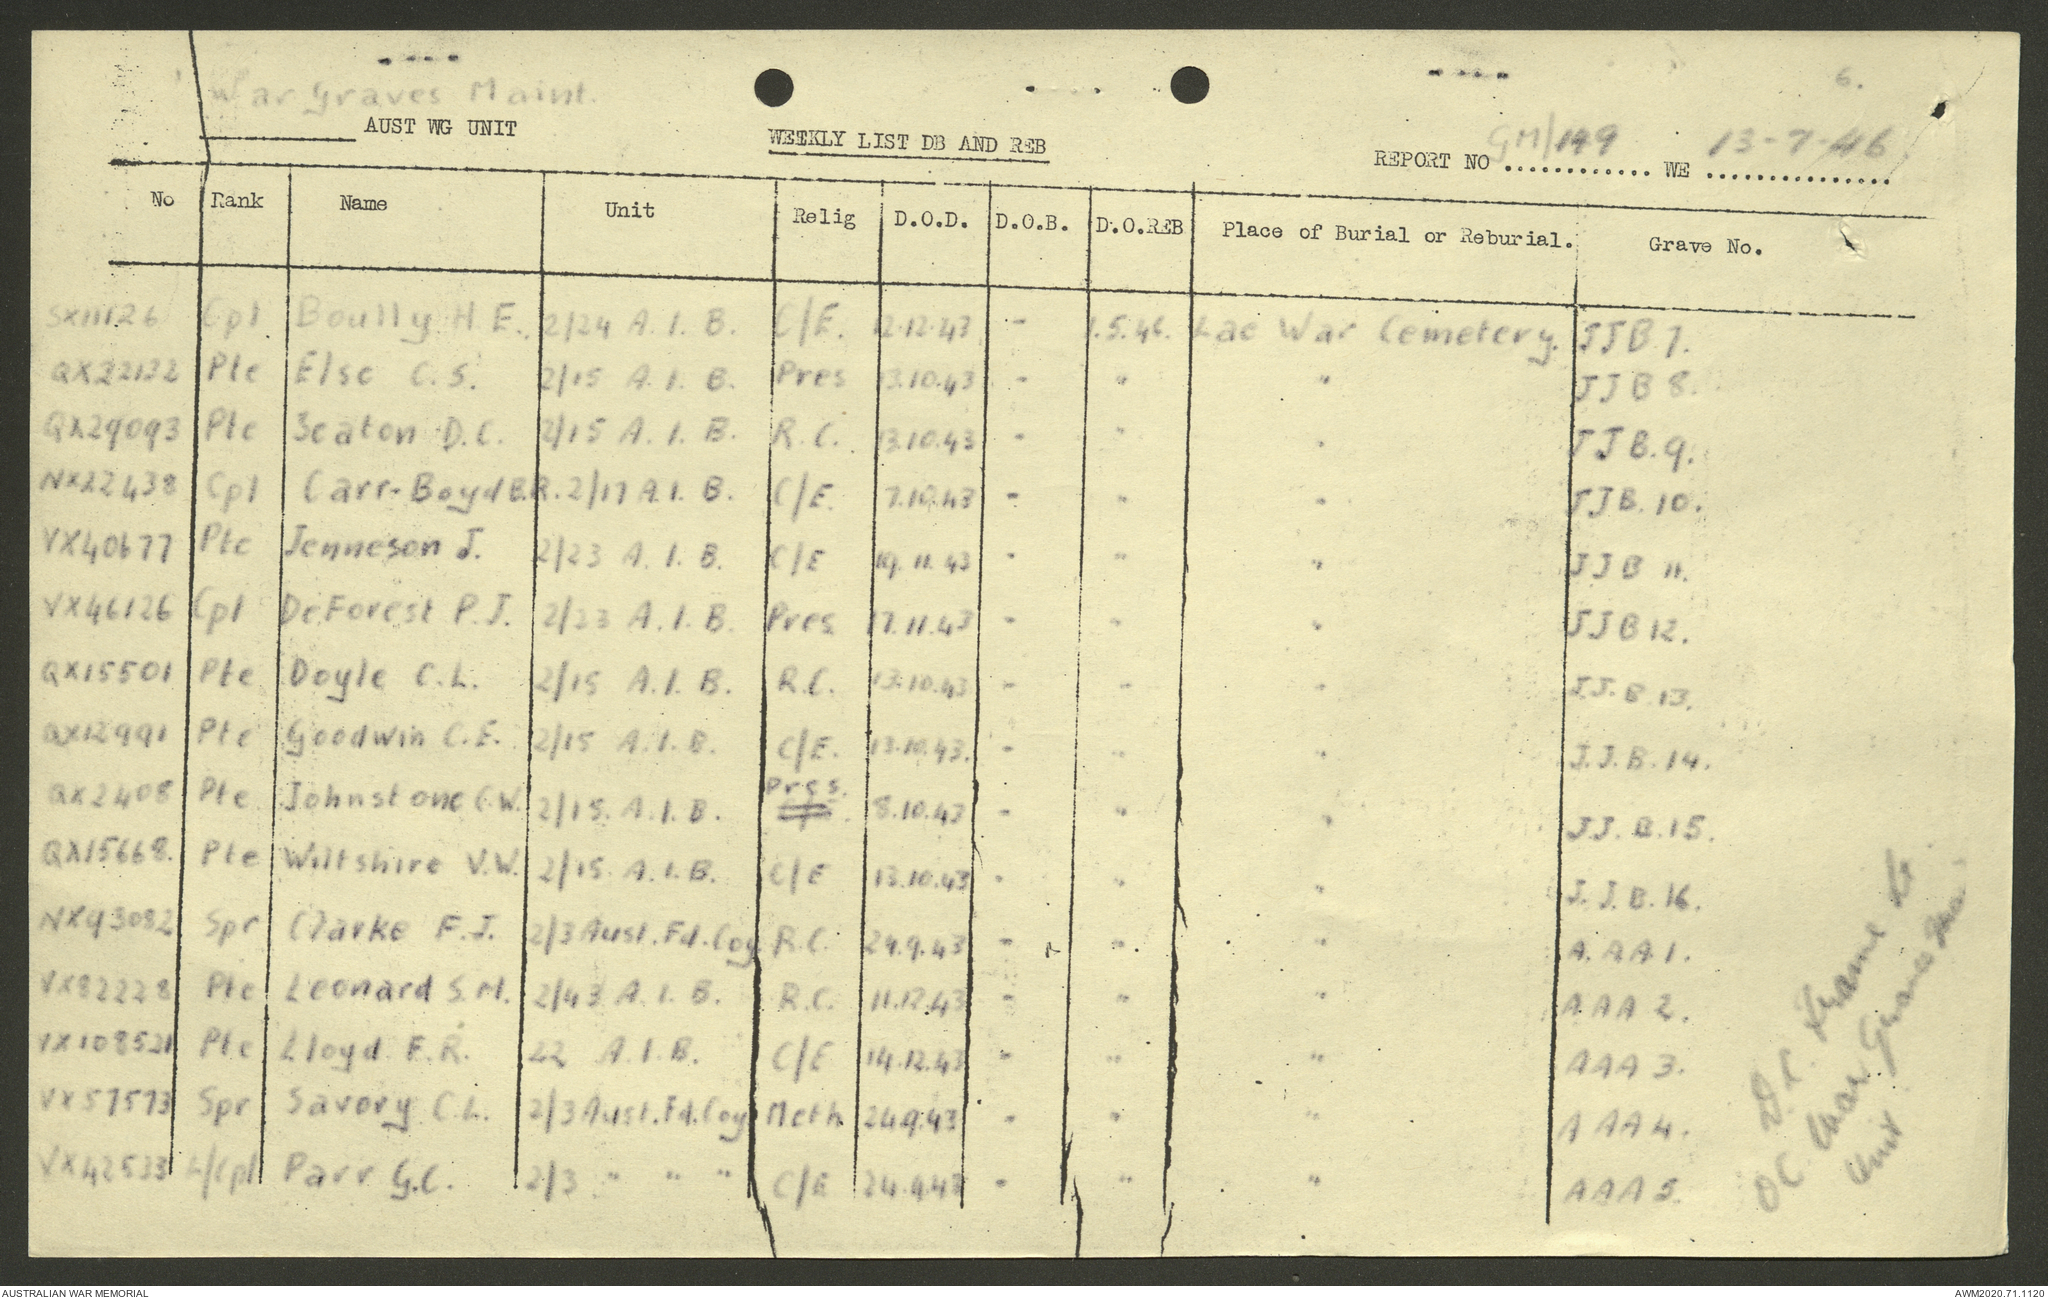 6.
War Graves Maint.
AUST WG UNIT
WEEKLY LIST DB AND REB
REPORT NO GM/149 WE 13-7-46
No Rank Name Unit Relig D.O.D. D.O.B. D.O.REB Place of Burial or Reburial. Grave No.
SX11126 Cpl Boully H.E. 2/24 A.I.B. C/E. 12.12.43 - 1.5.46. Lae War Cemetery. JJB.7.
QX22132 Pte Else C.S. 2/15 A.I.B. Pres 13.10.43 - " " JJB 8.
QX29093 Pte Seaton D.C. 2/15 A.I.B. R.C. 13.10.43 - " " JJB.9.
NX22438 Cpl Carr-Boyd B.R. 2/17 A.I.B. C/E. 7.10.43 - " " JJB.10.
VX40677 Pte Jenneson J. 2/23 A.I.B. C/E 19.11.43 - " " JJB 11.
VX46126 Cpl DeForest P.J. 2/23 A.I.B. Pres 17.11.43 - " " JJB 12.
QX15501 Pte Doyle C.L. 2/15 A.I.B. R.C. 13.10.43 - " " J.J.B.13.
QX12991 Pte Goodwin C.E. 2/15 A.I.B. C/E. 13.10.43. - " J.J.B.14.
QX2408 Pte Johnstone C.W. 2/15. A.I.B. Pres. 8.10.43 - " " J.J.B.15.
QX15668. Pte Wiltshire V.W. 2/15. A.I.B. C/E 13.10.43 - " " J.J.B.16.
NX93082 Spr Clarke F.J. 2/3 Aust.Fd.Coy R.C. 24.9.43 - " " A.AA1.
VX82228 Pte Leonard S.M. 2/43 A.I.B. R.C. 11.12.43 - " " AAA 2.
VX108521 Pte Lloyd F.R. 22 A.I.B. C/E 14.12.43 - " " AAA 3.
VX57573 Spr Savory C.L. 2/3 Aust.Fd.Coy Meth 24.9.43 - " " AAA4.
VX42533 L/Cpl Parr G.C. 2/3 " " " C/E 24.9.43 - " " AAA5.
OC War Graves
Unit
AUSTRALIAN WAR MEMORIAL
AWM2020.71.1120